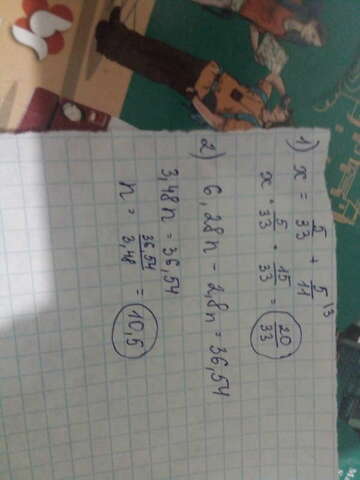 1) x = 5/33 + 5/11 \3
x = 5/33 + 15/33 = 20/33
2) 6,28n - 2,8n = 36,54
3,48n = 36,54
n = 36,54/3,48 = 10,5